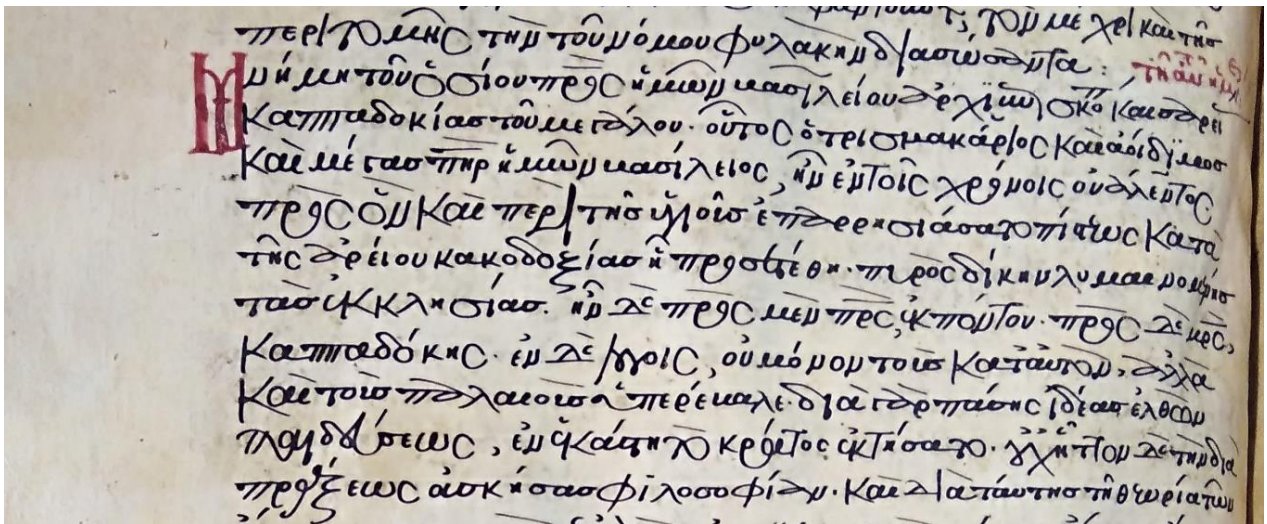 τὸν μέχρι καὶ τῆς
περιτομῆς τὴν τοῦ νόμου φυλακὴν διασώσαντα: τῇ αὐτῇ ἡμέ
Μνήμη τοῦ ὁσίου πρς ἡμῶν βασιλείου ἀρχιεπισκό καισαρεί
καππαδοκίας τοῦ μεγάλου. οὗτος ὁ τρισμακάριος καὶ ἀοίδιμος
καὶ μέγας πηρ ἡμῶν βασίλειος, ἦν ἐν τοῖς χρόνοις οὐάλεντος
πρὸς ὃν καὶ περὶ τῆς ὑγιοῦς ἐπαρρησιάσατο πίστεως κατὰ
τῆς ἀρείου κακοδοξίας ᾗ προσετέθη. πυρὸς δίκην λυμαινομένης
τὰς ἐκκλησίας. ἦν δὲ πρὸς μὲν πρς, ἐκ πόντου. πρὸς δὲ μρς,
καππαδόκης. ἐν δὲ λόγοις, οὐ μόνον τοὺς κατ' αὐτὸν, ἀλλὰ
καὶ τοὺς παλαιοὺς ὑπερέβαλε. διὰ γὰρ πάσης ἰδέας ἐλθὼν
παιδεύσεως, ἐν ἑκάστη τὸ κράτος ἐκτήσατο. οὐχ ἧττον δὲ τὴν διὰ
πράξεως ἀσκήσας φιλοσοφίαν. καὶ διὰ ταύτης τῇ θεωρία τῶν